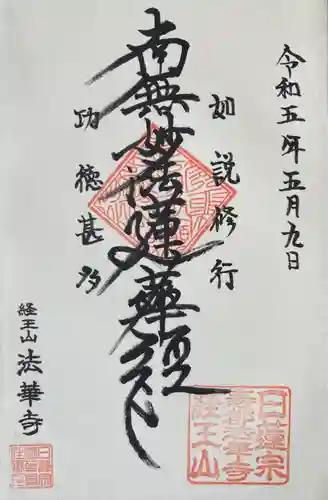 令和五年五月九日
如説修行
南無妙法蓮華経
功徳甚多
経王山 法華寺
日蓮宗
法華寺
経王山